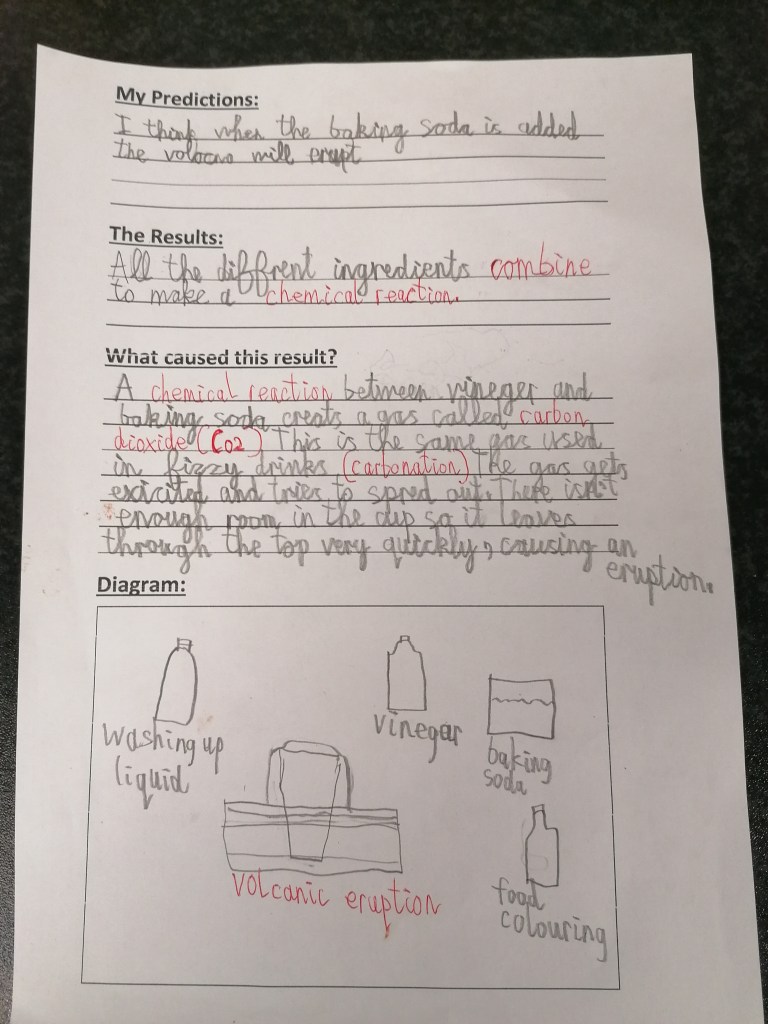 My Predictions:
I think when the baking soda is added
the volocno will erupt
The Results:
All the diffrent ingredients combine
to make a chemical reaction.
What caused this result?
A chemical reaction between vineger and
baking soda creats a gas called carbon
dioxide (Co2) This is the same gas used
in fizzy drinks (carbonation) The gas gets
exicited and tries to spred out. There isn't
enough room in the cup so it leaves
through the top very quickly, causing an
eruption.
Diagram:
washing up
liquid
vinegar
baking
soda
volcanic eruption
food
colouring